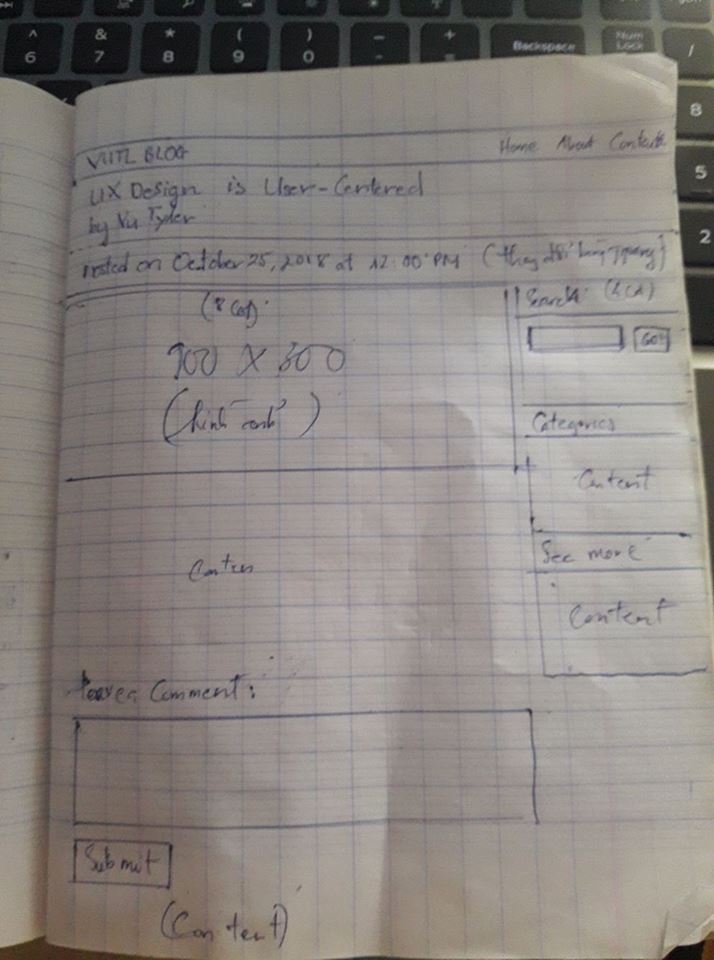 ^ & * ( ) — + Backspace Num Lock /
6 7 8 9 0 - =
8
5
2
VUTL BLOG Home About Contact
UX Design is User-Centered
by Vu Tyler
Posted on October 25, 2018 at 12:00 PM (thay đổi bằng jquery)
(8 Col) Search (4 Col)
900 X 300 Go!
(hình ảnh)
Categories
Content
See more
Content
Conten
Leave a Comment:
Submit
(Content)